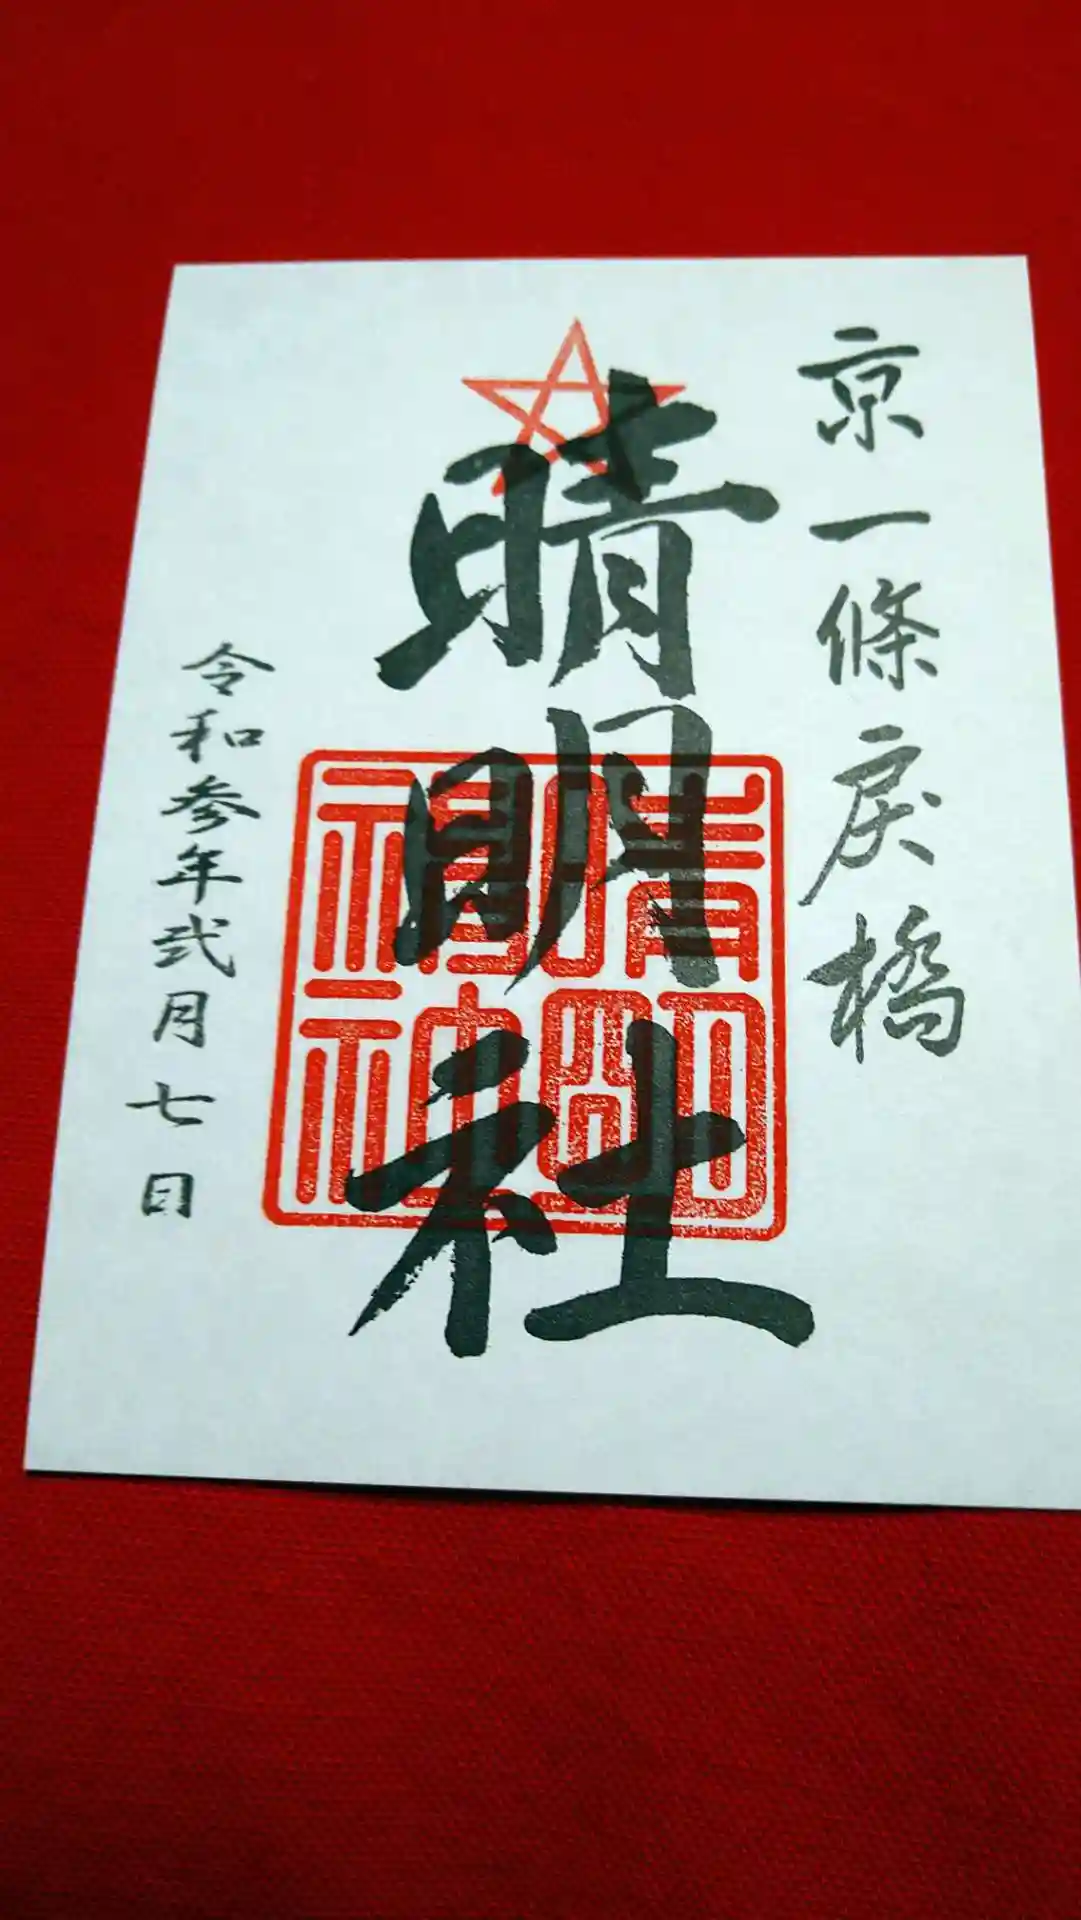 京一條戻橋
晴明社
晴明神社
令和参年弐月七日